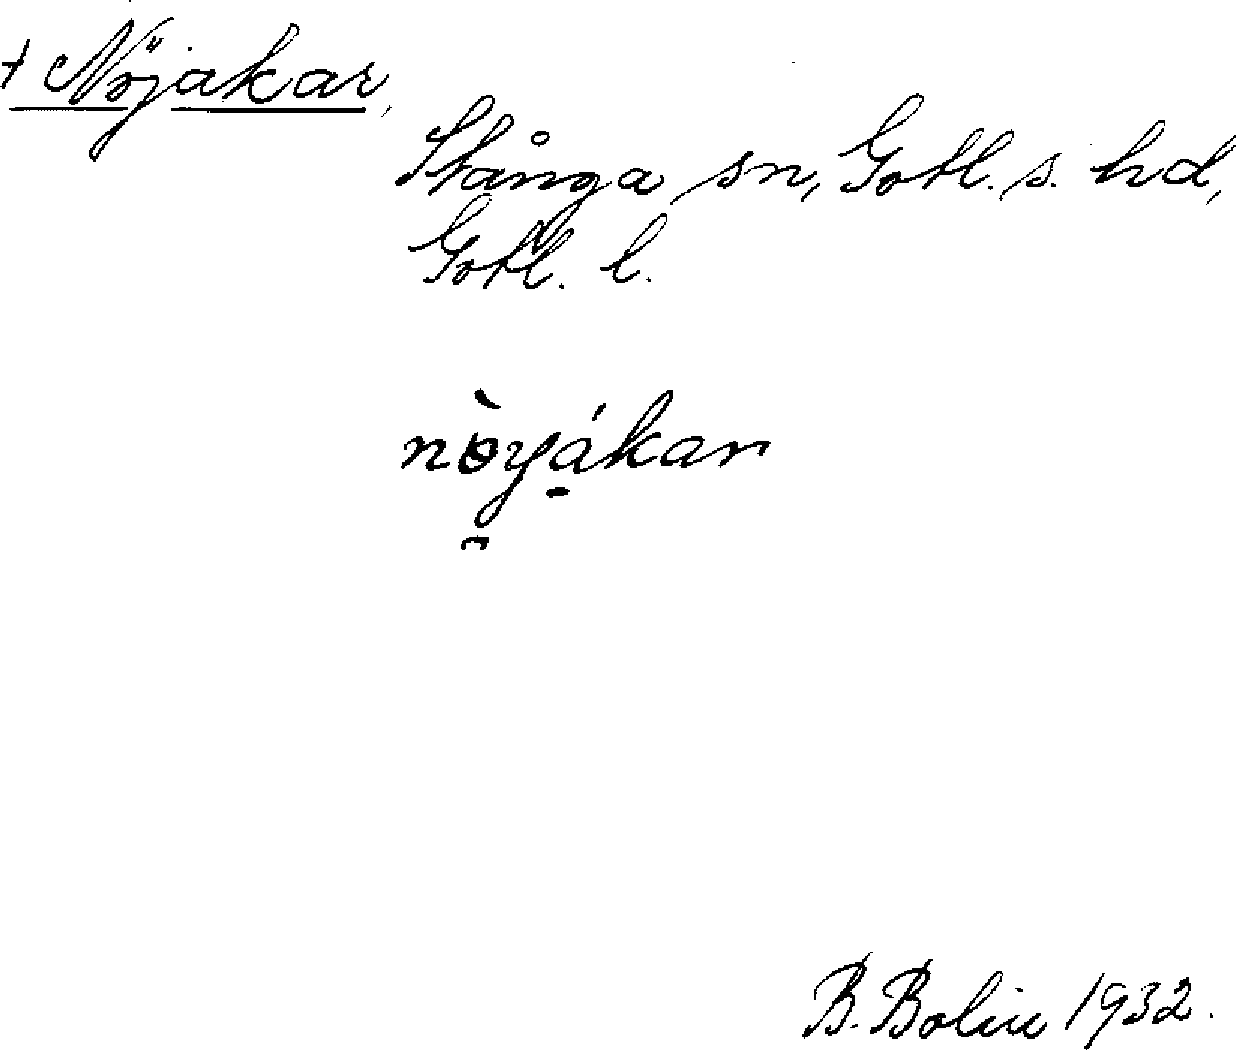 + Nöjakar,
Stånga sn, Gotl. s. hd,
Gotl. l.
nòyákar
B. Bolin 1932.